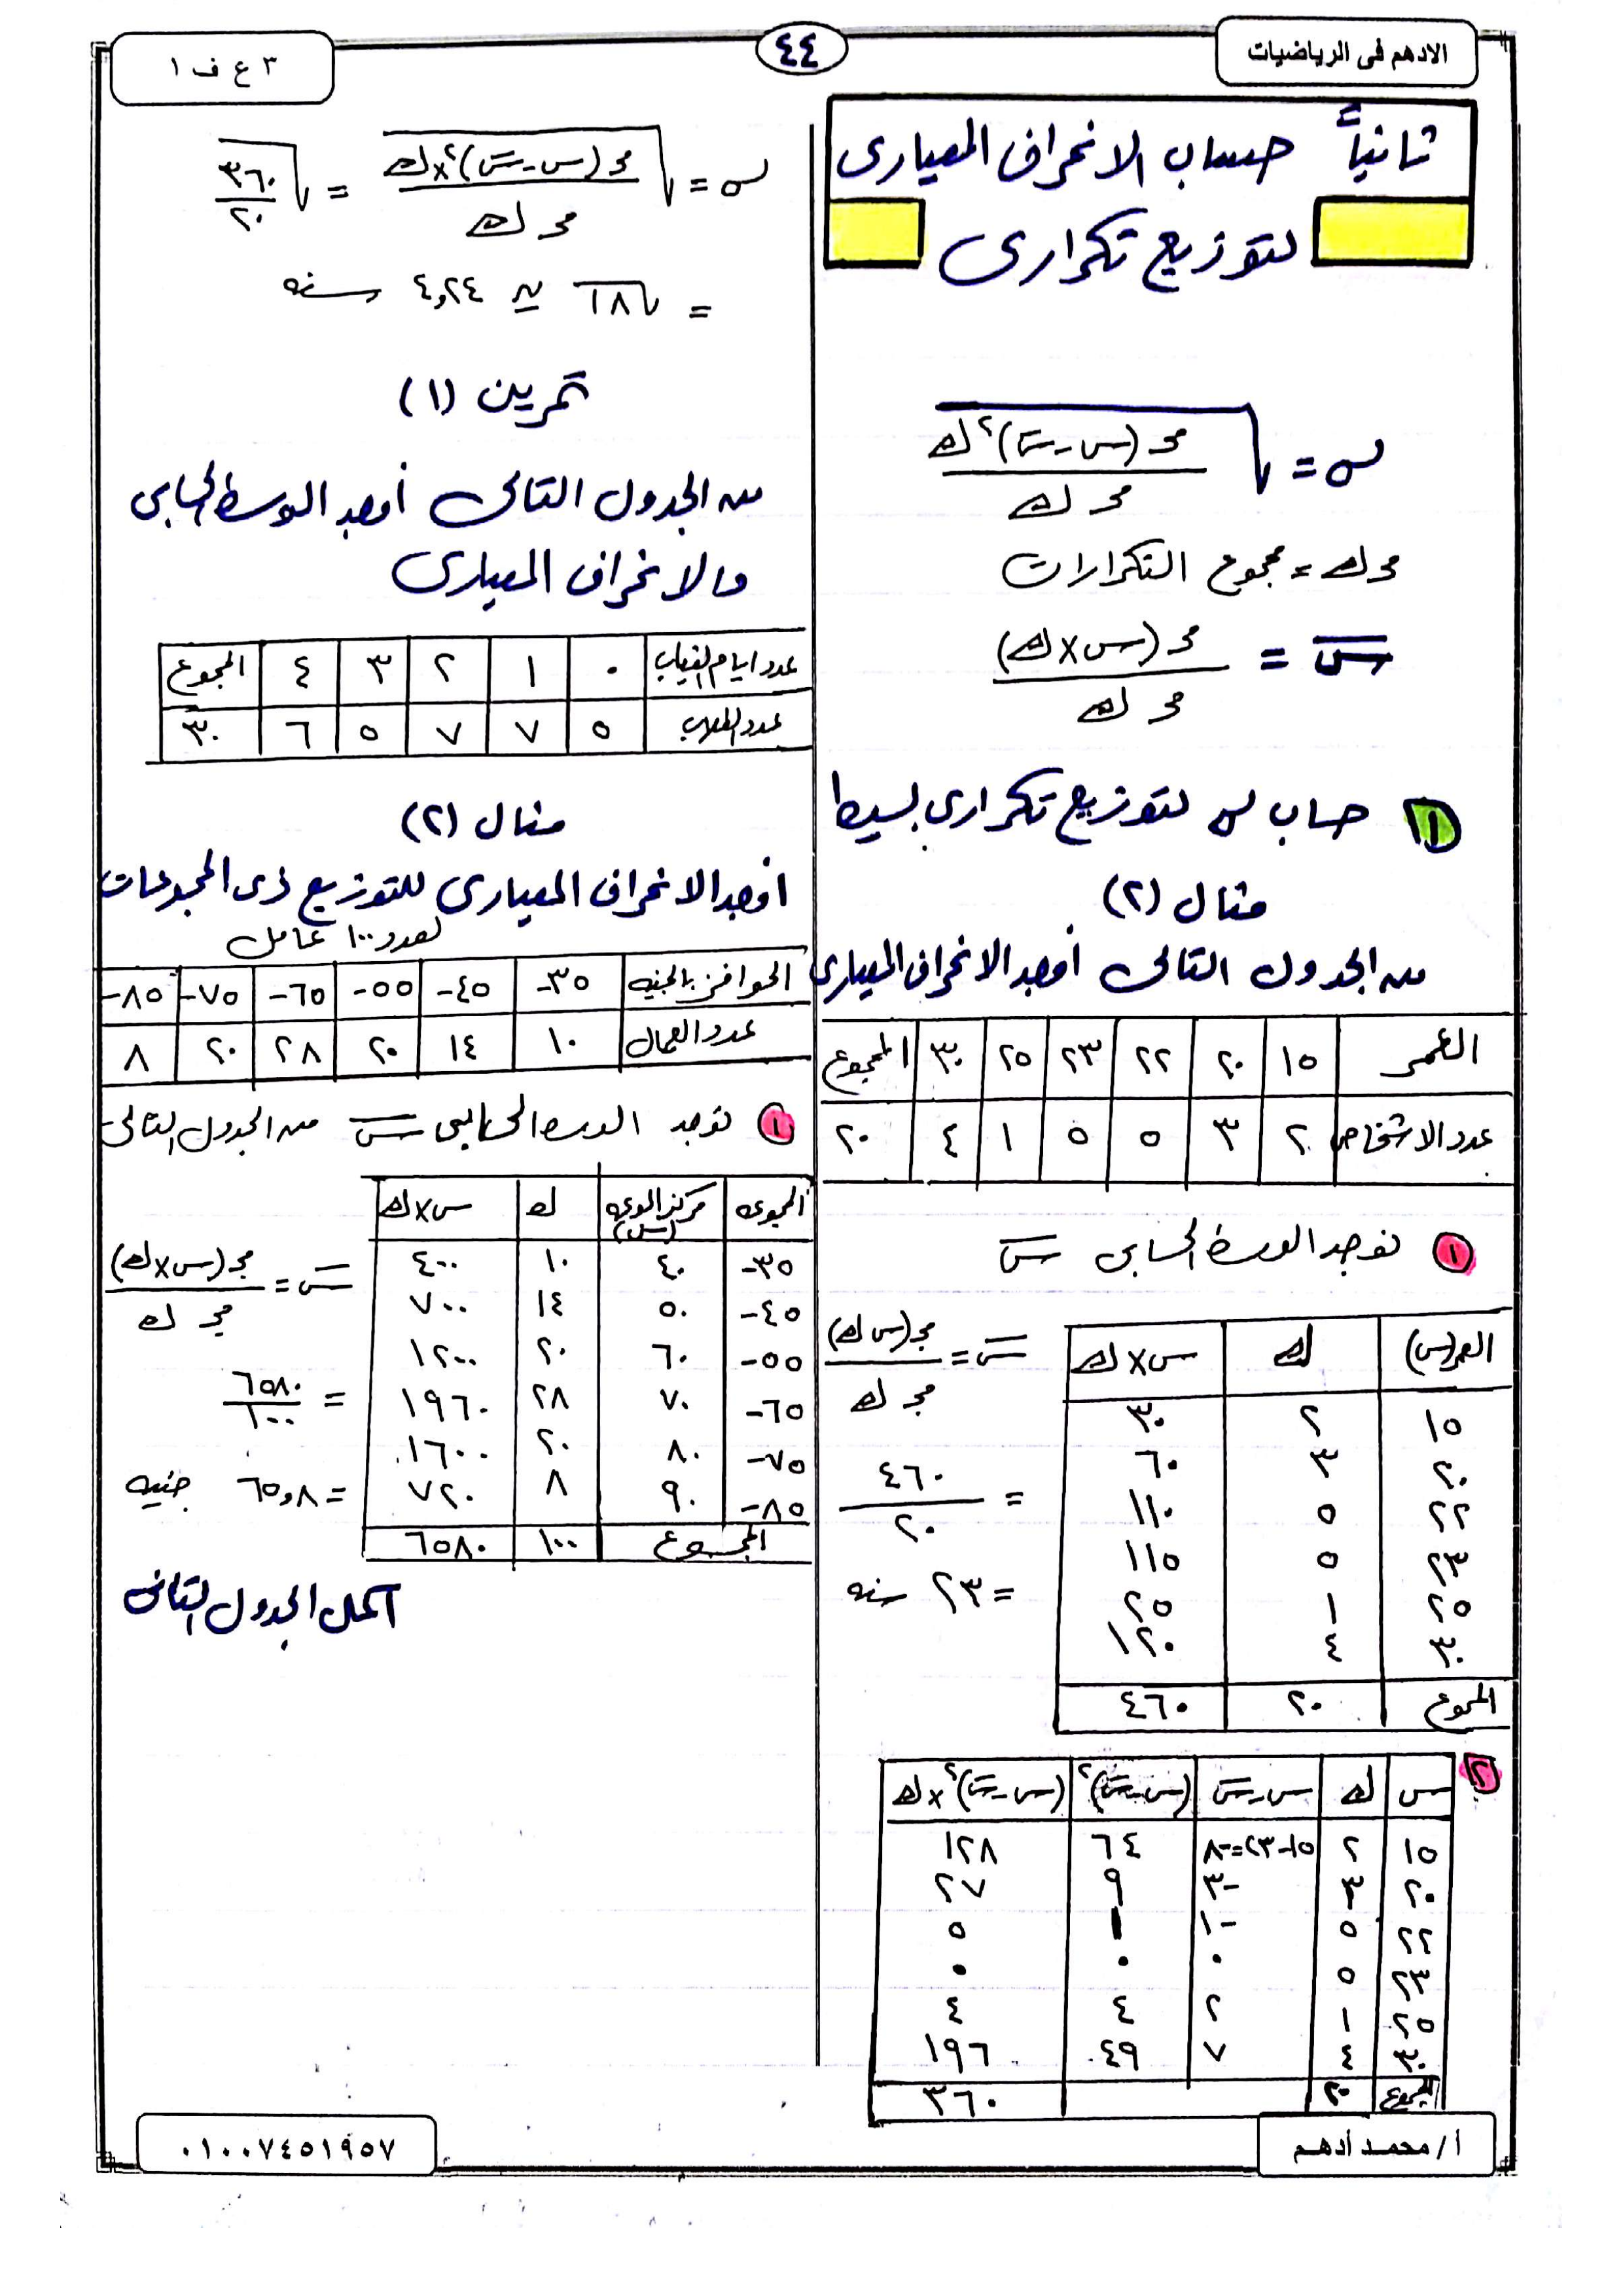 الادهم فى الرياضيات
٤٤
٣ ع ف ١
ثانياً حساب الانحراف المعيارى
لتوزيع تكرارى
σ = √(مجـ (س - س̄)² ك / مجـ ك)
مجـ ك = مجموع التكرارات
س̄ = مجـ (س × ك) / مجـ ك
١ حساب σ لتوزيع تكرارى بسيط
مثال (٢)
من الجدول التالى أوجد الانحراف المعيارى
العمر ١٥ ٢٠ ٢٢ ٢٣ ٢٥ ٣٠ المجموع
عدد الاشخاص ٢ ٣ ٥ ٥ ١ ٤ ٢٠
١ نوجد الوسط الحسابى س̄
العمر (س) ك س × ك
١٥ ٢ ٣٠
٢٠ ٣ ٦٠
٢٢ ٥ ١١٠
٢٣ ٥ ١١٥
٢٥ ١ ٢٥
٣٠ ٤ ١٢٠
المجموع ٢٠ ٤٦٠
س̄ = مجـ (س ك) / مجـ ك
= ٤٦٠ / ٢٠
= ٢٣ سنه
٢
س ك س - س̄ (س - س̄)² (س - س̄)² × ك
١٥ ٢ ١٥ - ٢٣ = -٨ ٦٤ ١٢٨
٢٠ ٣ -٣ ٩ ٢٧
٢٢ ٥ -١ ١ ٥
٢٣ ٥ ٠ ٠ ٠
٢٥ ١ ٢ ٤ ٤
٣٠ ٤ ٧ ٤٩ ١٩٦
المجموع ٢٠ ٣٦٠
σ = √(مجـ (س - س̄)² × ك / مجـ ك) = √(٣٦٠ / ٢٠)
= √١٨ ≃ ٤,٢٤ سنه
تمرين (١)
من الجدول التالى أوجد الوسط الحسابى
والانحراف المعيارى
عدد ايام الغياب ٠ ١ ٢ ٣ ٤ المجموع
عدد الطلاب ٥ ٧ ٧ ٥ ٦ ٣٠
مثال (٢)
اوجد الانحراف المعيارى للتوزيع ذى المجموعات
لعدد ١٠٠ عامل
الحوافز بالجنيه ٣٥- ٤٥- ٥٥- ٦٥- ٧٥- ٨٥-
عدد العمال ١٠ ١٤ ٢٠ ٢٨ ٢٠ ٨
١ نوجد الوسط الحسابى س̄ من الجدول التالى
المجموعه مركز المجموعه (س) ك س × ك
٣٥- ٤٠ ١٠ ٤٠٠
٤٥- ٥٠ ١٤ ٧٠٠
٥٥- ٦٠ ٢٠ ١٢٠٠
٦٥- ٧٠ ٢٨ ١٩٦٠
٧٥- ٨٠ ٢٠ ١٦٠٠
٨٥- ٩٠ ٨ ٧٢٠
المجموع ١٠٠ ٦٥٨٠
س̄ = مجـ (س × ك) / مجـ ك
= ٦٥٨٠ / ١٠٠
= ٦٥,٨ جنيه
اكمل الجدول التالى
أ / محمد أدهم
٠١٠٠٧٤٥١٩٥٧